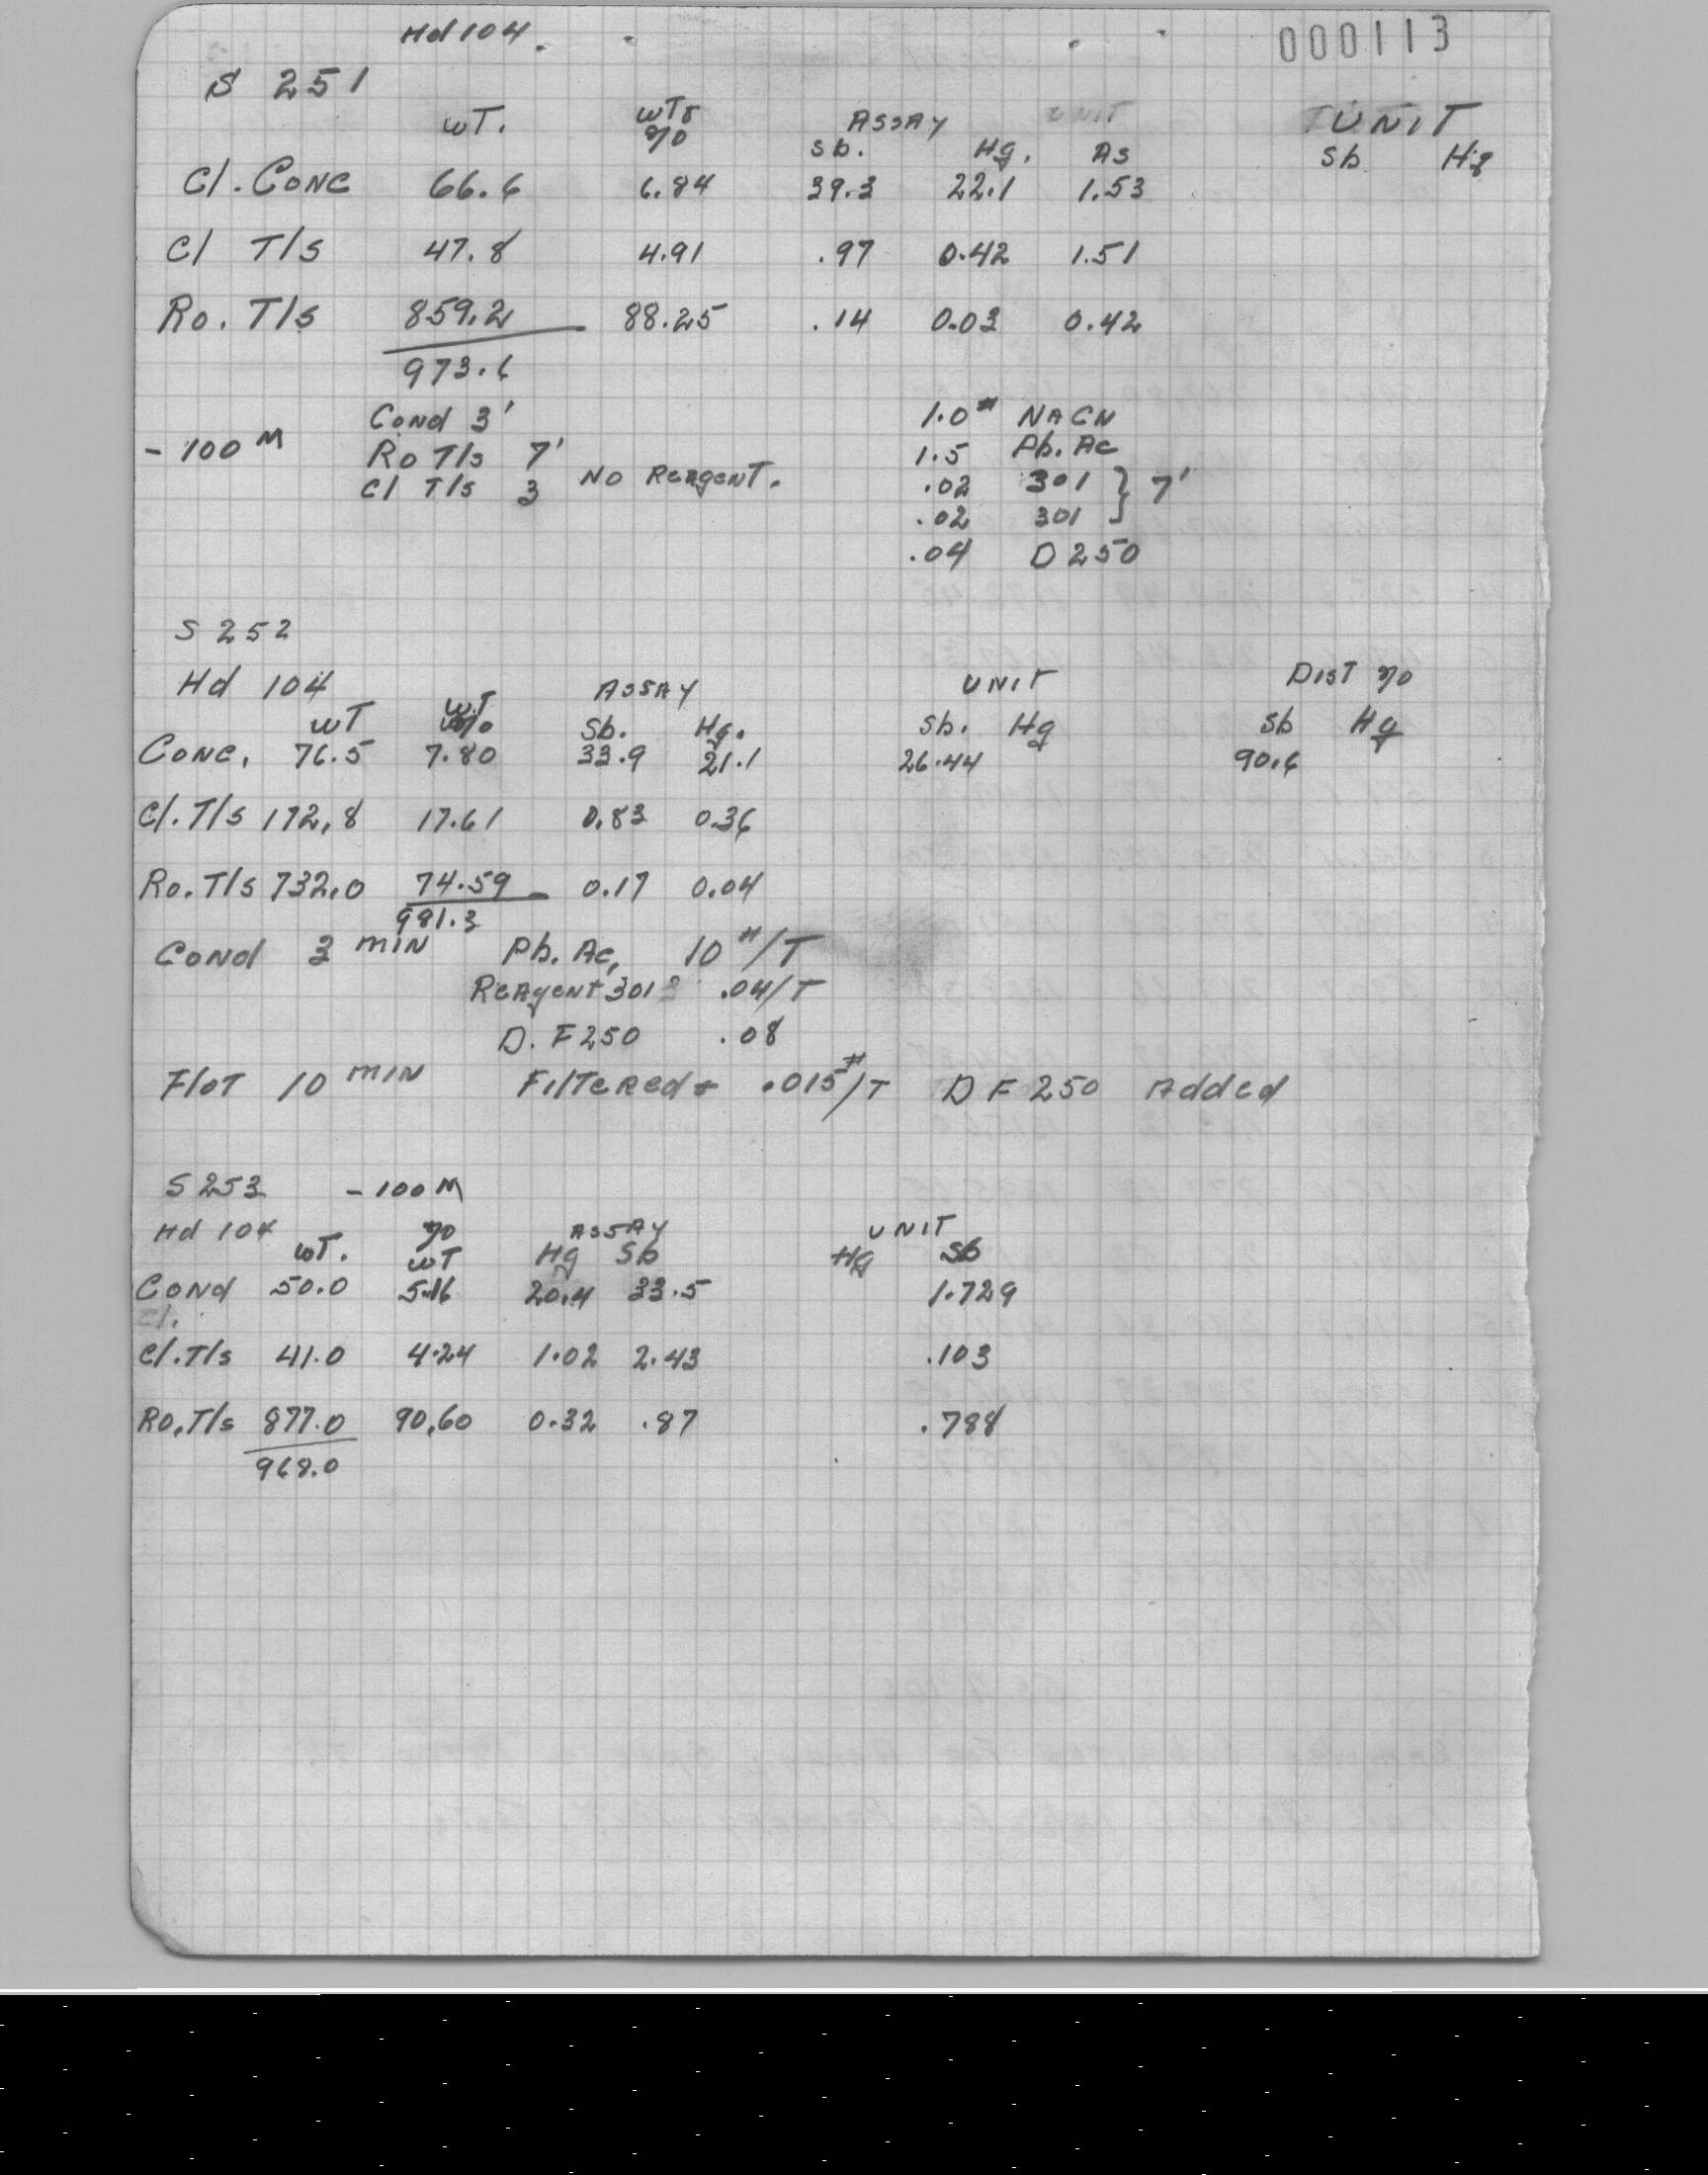 Hd 104. 000113
S 251
WT. WTs % ASSAY UNIT UNIT
Sb. Hg. As Sb Hg
Cl. Conc 66.6 6.84 39.3 22.1 1.53
Cl T/s 47.8 4.91 .97 0.42 1.51
Ro. T/s 859.2 88.25 .14 0.03 0.42
973.6
Cond 3' 1.0# NACN
-100 M Ro T/s 7' 1.5 Pb. Ac
Cl T/s 3 No Reagent. .02 301 } 7'
.02 301
.04 D 250
S 252
Hd 104 ASSAY UNIT Dist %
WT WT % Sb. Hg. Sb. Hg Sb Hg
Conc. 76.5 7.80 33.9 21.1 26.44 90.6
Cl. T/s 172.8 17.61 0.83 0.36
Ro. T/s 732.0 74.59 0.17 0.04
981.3
Cond 3 min Pb. Ac. 10 #/T
Reagent 301 .04/T
D. F 250 .08
Flot 10 min Filtered .015#/T D F 250 Added
S 253 -100 M
Hd 104 % ASSAY UNIT
WT. WT Hg Sb Hg Sb
Cond 50.0 5.16 20.4 33.5 1.729
Cl.
Cl. T/s 41.0 4.24 1.02 2.43 .103
Ro. T/s 877.0 90.60 0.32 .87 .788
968.0